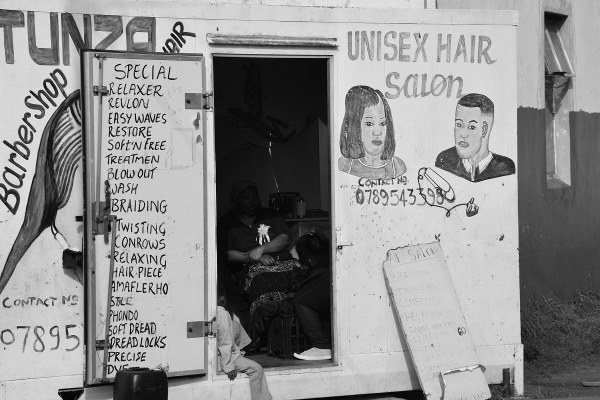 TUNZA
HAIR
BarberShop
CONTACT No
07895
SPECIAL
RELAXER
REVLON
EASY WAVES
RESTORE
SOFT'N FREE
TREATMEN
BLOW OUT
WASH
BRAIDING
TWISTING
CONROWS
RELAXING
HAIR-PIECE
AMAFLERHO
STLE
PHONDO
SOFT DREAD
DREADLOCKS
PRECISE
DYE
UNISEX HAIR
Salon
CONTACT No
0789543398